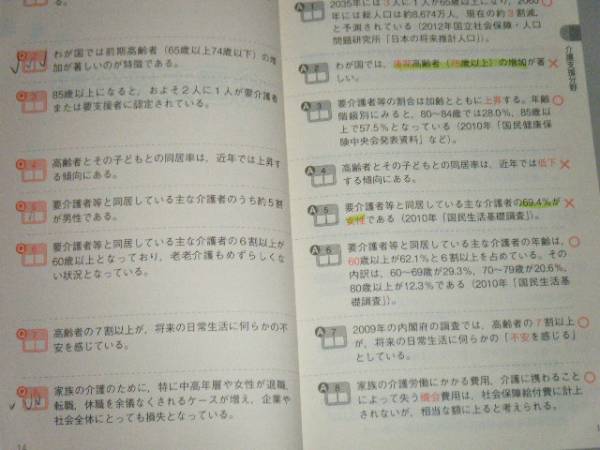 わが国では前期高齢者（65歳以上74歳以下）の増
加が著しいのが特徴である。
85歳以上になると，およそ２人に１人が要介護者
または要支援者に認定されている。
高齢者とその子どもとの同居率は，近年では上昇す
る傾向にある。
要介護者等と同居している主な介護者のうち約５割
が男性である。
要介護者等と同居している主な介護者の６割以上が
60歳以上となっており，老老介護もめずらしくな
い状況となっている。
高齢者の７割以上が，将来の日常生活に何らかの不
安を感じている。
家族の介護のために，特に中高年層や女性が退職，
転職，休職を余儀なくされるケースが増え，企業や
社会全体にとっても損失となっている。
14
2035年には３人に１人が65歳以上になり，2060
年には総人口は約8,674万人，現在の約３割減，
と予測されている（2012年国立社会保障・人口
問題研究所「日本の将来推計人口」）。
A 2
わが国では，後期高齢者（75歳以上）の増加が著 ×
しい。
A 3
要介護者等の割合は加齢とともに上昇する。年齢 ○
階級別にみると，80〜84歳では28.0%，85歳以
上で57.5%となっている（2010年「国民健康保
険中央会発表資料」など）。
A 4
高齢者とその子どもとの同居率は，近年では低下 ×
する傾向にある。
A 5
要介護者等と同居している主な介護者の69.4%が ×
女性である（2010年「国民生活基礎調査」）。
A 6
要介護者等と同居している主な介護者の年齢は， ○
60歳以上が62.1%と６割以上を占めている。その
内訳は，60〜69歳が29.3%，70〜79歳が20.6%，
80歳以上が12.3%である（2010年「国民生活基
礎調査」）。
A 7
2009年の内閣府の調査では，高齢者の７割以上 ○
が，将来の日常生活に何らかの「不安を感じる」
としている。
A 8
家族の介護労働にかかる費用，介護に携わること ○
によって失う機会費用は，社会保障給付費に計上
されないが，相当な額に上ると考えられる。
介護支援分野